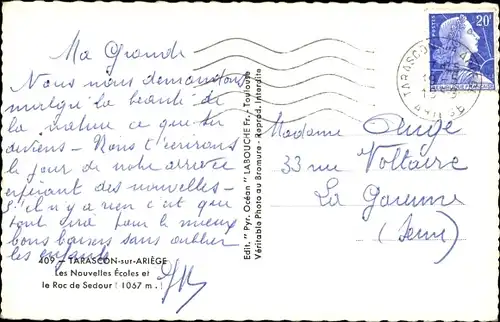 Ma Grande
Nous nous demandons
malgré la beauté de
la nature ce que tu
deviens – Nous t'écrirons
le jour de notre arrivée
espérant des nouvelles –
s'il n'y a rien c'est que
tout va pour le mieux
bons baisers sans oublier
les enfants
409 - TARASCON-sur-ARIÈGE
Les Nouvelles Écoles et
le Roc de Sedour (1067 m.)
Edit. "Pyr. Océan" LABOUCHE Fr. - Toulouse
Véritable Photo au Bromure - Reprod. Interdite
20F
TARASCON
ARIEGE
Madame Auge
33 rue Voltaire
La Garenne
(Seine)